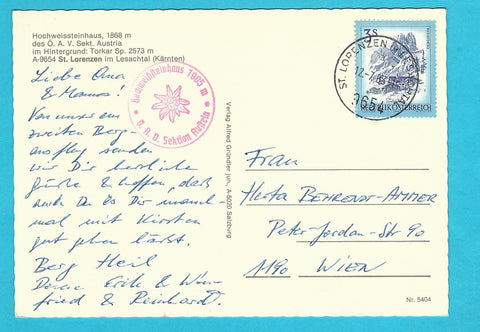 Hochweissteinhaus, 1868 m
des Ö. A. V. Sekt. Austria
im Hintergrund: Torkar Sp. 2573 m
A-9654 St. Lorenzen im Lesachtal (Kärnten)
Liebe Oma
& Mama!
Von unserem
zweiten Berg-
ausflug senden
wir Dir herzliche
Grüße & hoffen, daß
auch Du es Dir
mal mit Kirsten
gut gehen läßt.
Berg Heil
Deine Erik &
fried & Reinhard.
Ö. A. V. Sektion Austria
Verlag Alfred Gründler jun., 5020 Salzburg
3S
ST. LORENZEN IM LESACHTAL
9654
REPUBLIK ÖSTERREICH
Frau
Herta BEHRENDT-AMMER
Peter-Jordan-Str 90
1190 WIEN
Nr. 5404